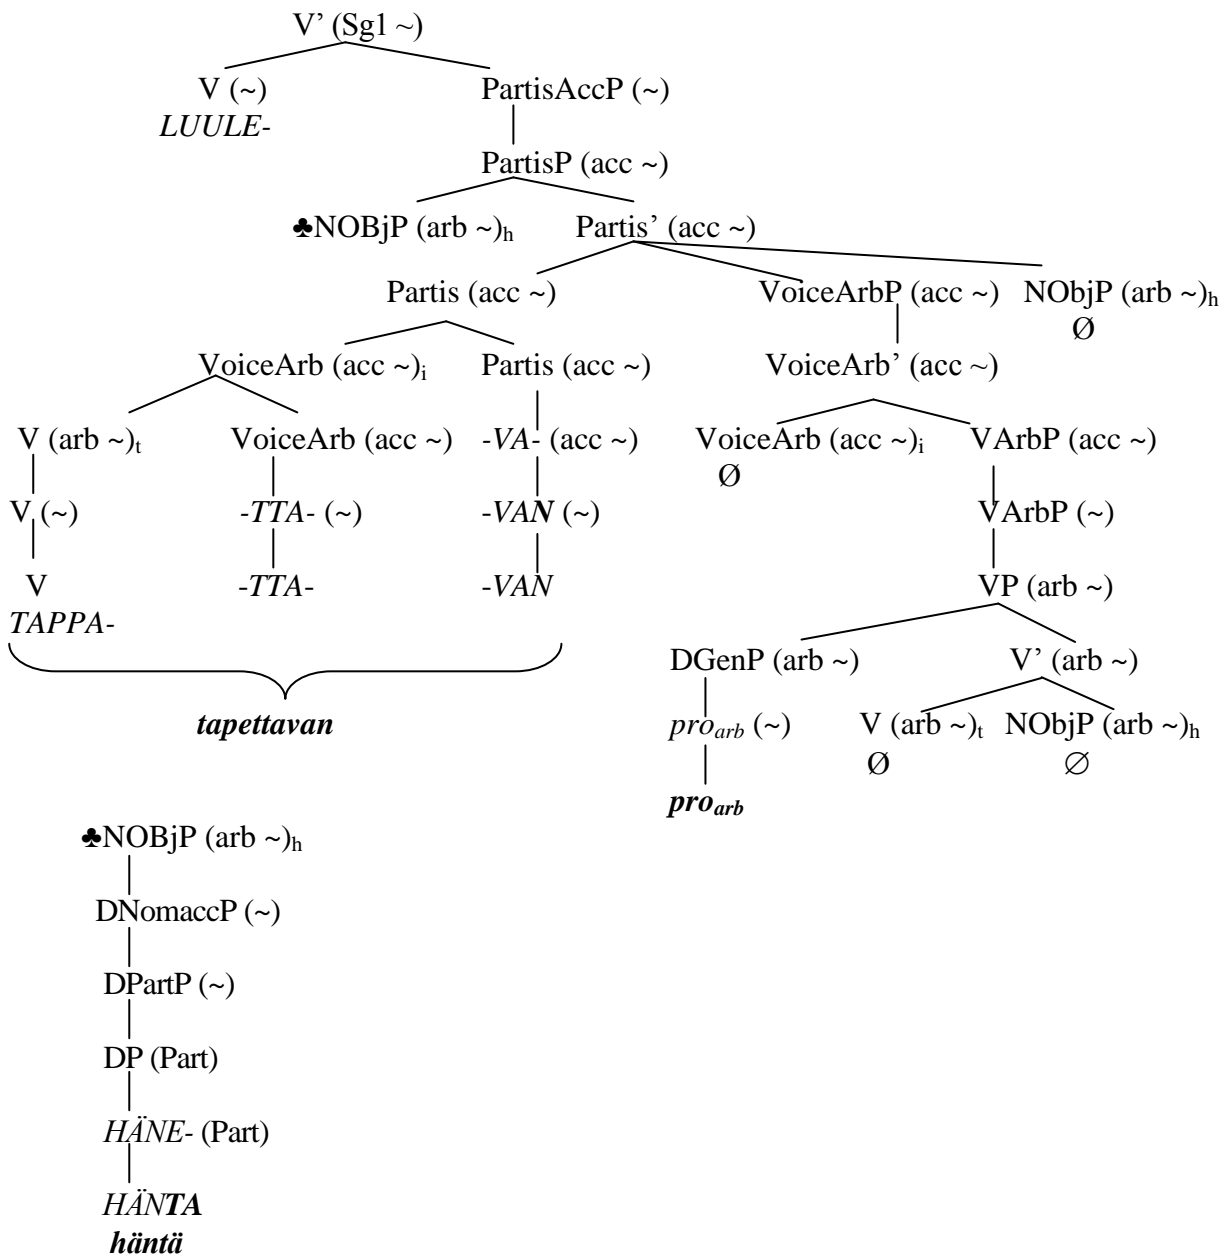 V’ (Sg1 ~)
V (~) PartisAccP (~)
LUULE-
PartisP (acc ~)
♣NOBjP (arb ~)h Partis’ (acc ~)
Partis (acc ~) VoiceArbP (acc ~) NObjP (arb ~)h
Ø
VoiceArb (acc ~)i Partis (acc ~) VoiceArb’ (acc ~)
V (arb ~)t VoiceArb (acc ~) -VA- (acc ~) VoiceArb (acc ~)i VArbP (acc ~)
Ø
V (~) -TTA- (~) -VAN (~) VArbP (~)
V -TTA- -VAN VP (arb ~)
TAPPA-
DGenP (arb ~) V’ (arb ~)
tapettavan proarb (~) V (arb ~)t NObjP (arb ~)h
Ø ∅
proarb
♣NOBjP (arb ~)h
DNomaccP (~)
DPartP (~)
DP (Part)
HÄNE- (Part)
HÄNTA
häntä